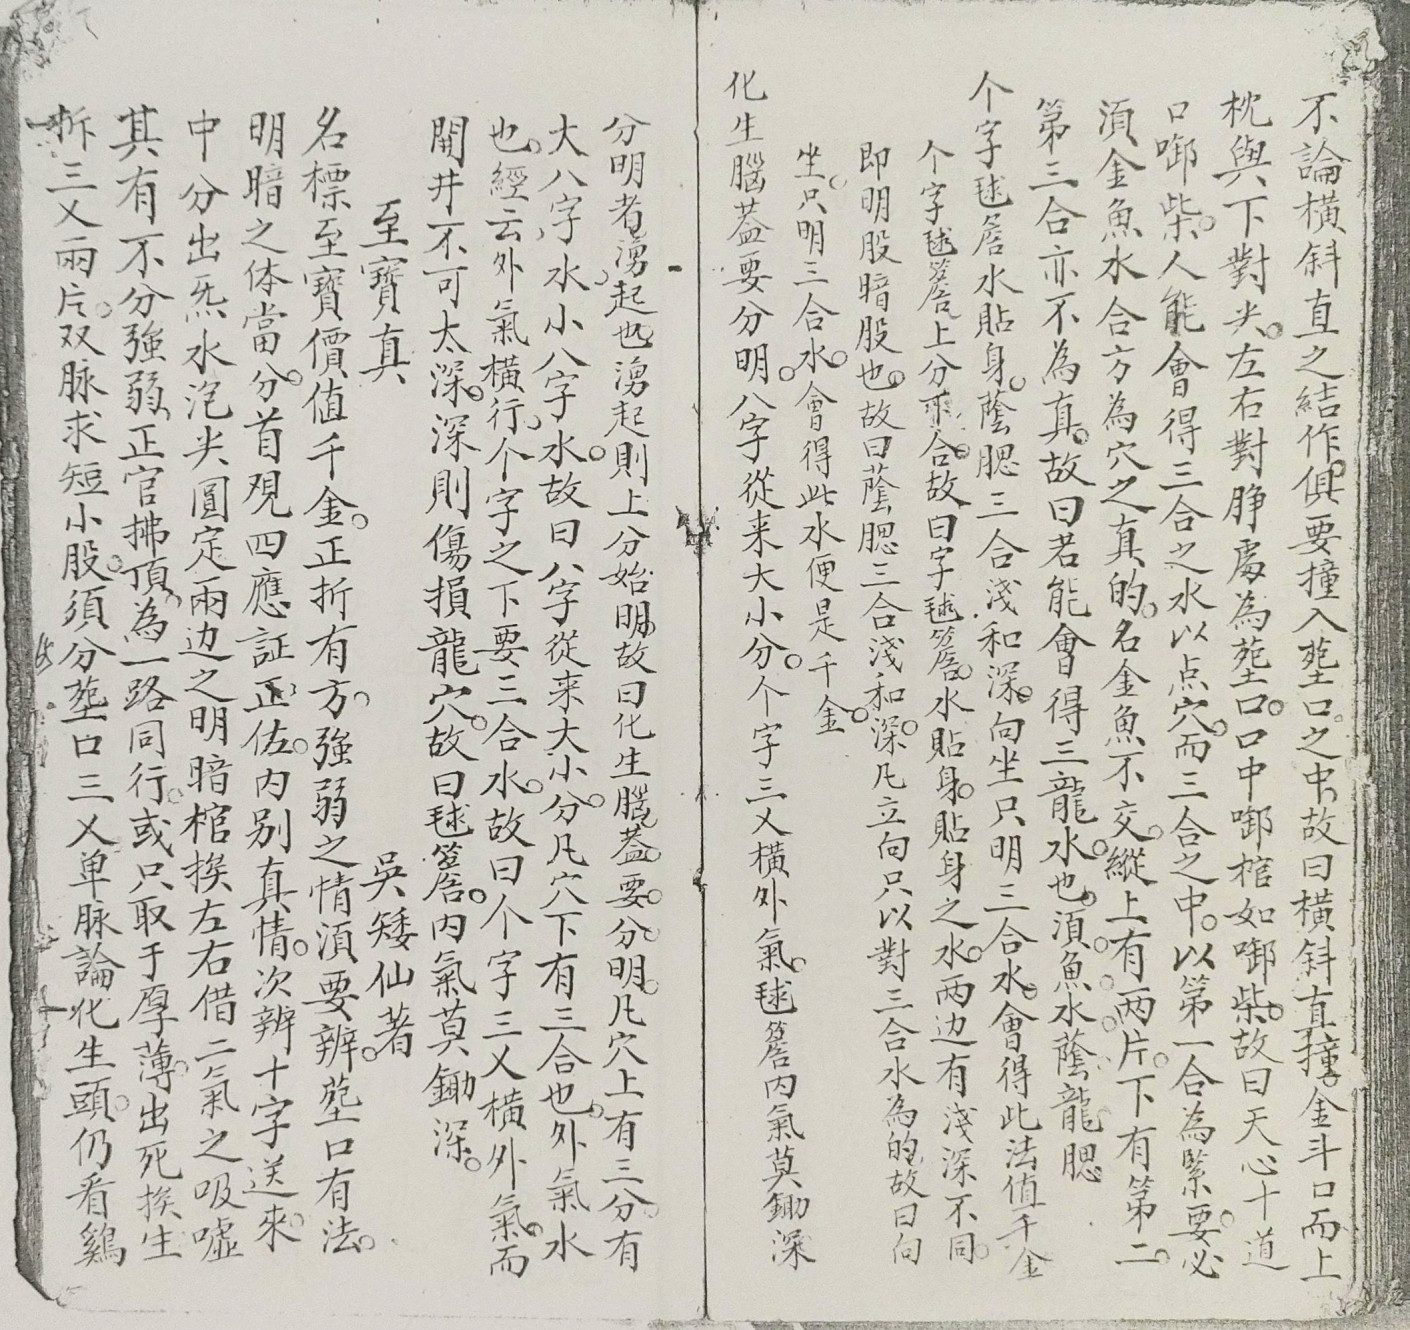 不論橫斜直之結作俱要撞入茔口之中故曰橫斜直撞金斗口而上
枕與下對尖左右對睜處為茔口口中啣棺如啣柴故曰天心十道
口啣柴人能會得三合之水以点穴而三合之中以第一合為緊要必
湏金魚水合方為穴之真的名金魚不交縱上有両片下有第二
第三合亦不為真故曰若能會得三龍水也湏魚水蔭龍腮
个字毬簷水貼身蔭腮三合淺和深向坐只明三合水會得此法值千金
个字毬簷上分下合故曰字毬簷水貼身貼身之水両边有淺深不同
即明股暗股也故曰蔭腮三合淺和深凡立向只以對三合水為的故曰向
坐只明三合水會得此水便是千金
化生腦蓋要分明八字從来大小分个字三乂橫外氣毬簷内氣莫鋤深
分明者湧起也湧起則上分始明故曰化生腦蓋要分明凡穴上有三分有
大八字水小八字水故曰八字從来大小分凡穴下有三合也外氣水
也經云外氣橫行个字之下要三合水故曰个字三乂橫外氣而
開井不可太深深則傷損龍穴故曰毬簷内氣莫鋤深
至寶真
吳矮仙著
名標至寶價值千金正折有方強弱之情湏要辨茔口有法
明暗之体當分首現四應証正佐内别真情次辨十字送來
中分出炁水泡尖圓定兩边之明暗棺挨左右借二氣之吸噓
其有不分強弱正官拂頂為一路同行或只取于厚薄出死挨生
拆三乂兩片双脉求短小股須分茔口三乂单脉論化生頭仍看鷄